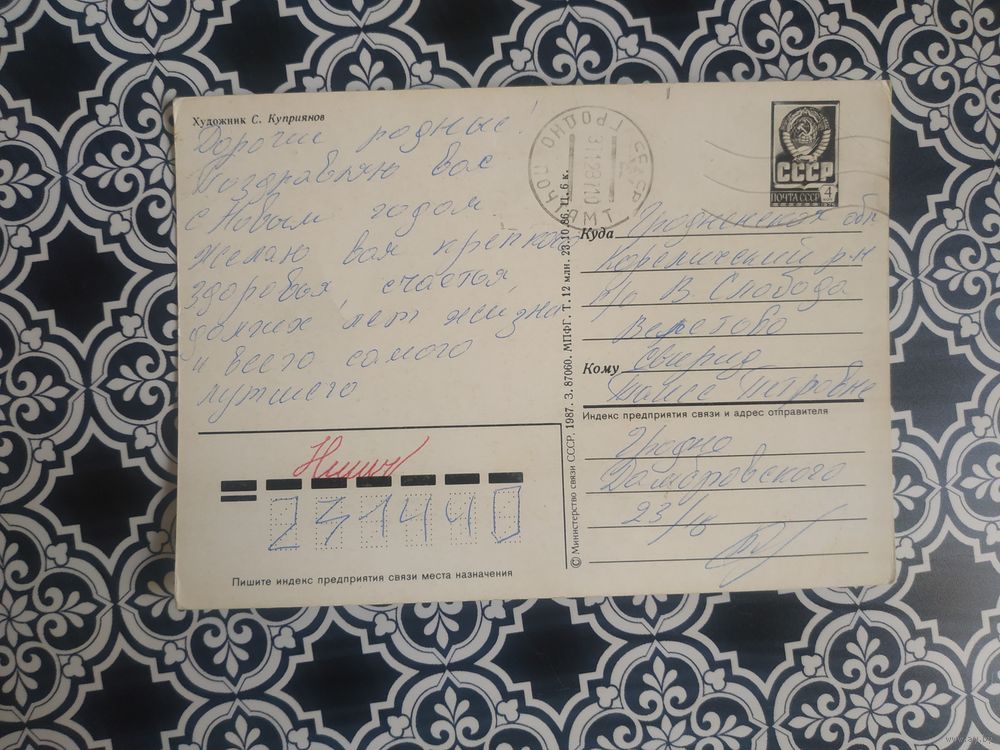 Художник С. Куприянов
Дорогие родные!
Поздравляю вас
с Новым годом
желаю вам крепкого
здоровья, счастья,
долгих лет жизни
и всего самого
лутшего
231440
Пишите индекс предприятия связи места назначения
© Министерство связи СССР. 1987. З. 87060. МПФГ. Т. 12 млн. 23.10.86. Ц. 6 к.
ГРОДНО
ПОЧТАМТ
СССР
ПОЧТА СССР 4
Куда Гродненская обл
Кореличский р-н
п/о В. Слобода
Веретово
Кому Свирид
Таисе Петровне
Индекс предприятия связи и адрес отправителя
Гродно
23/